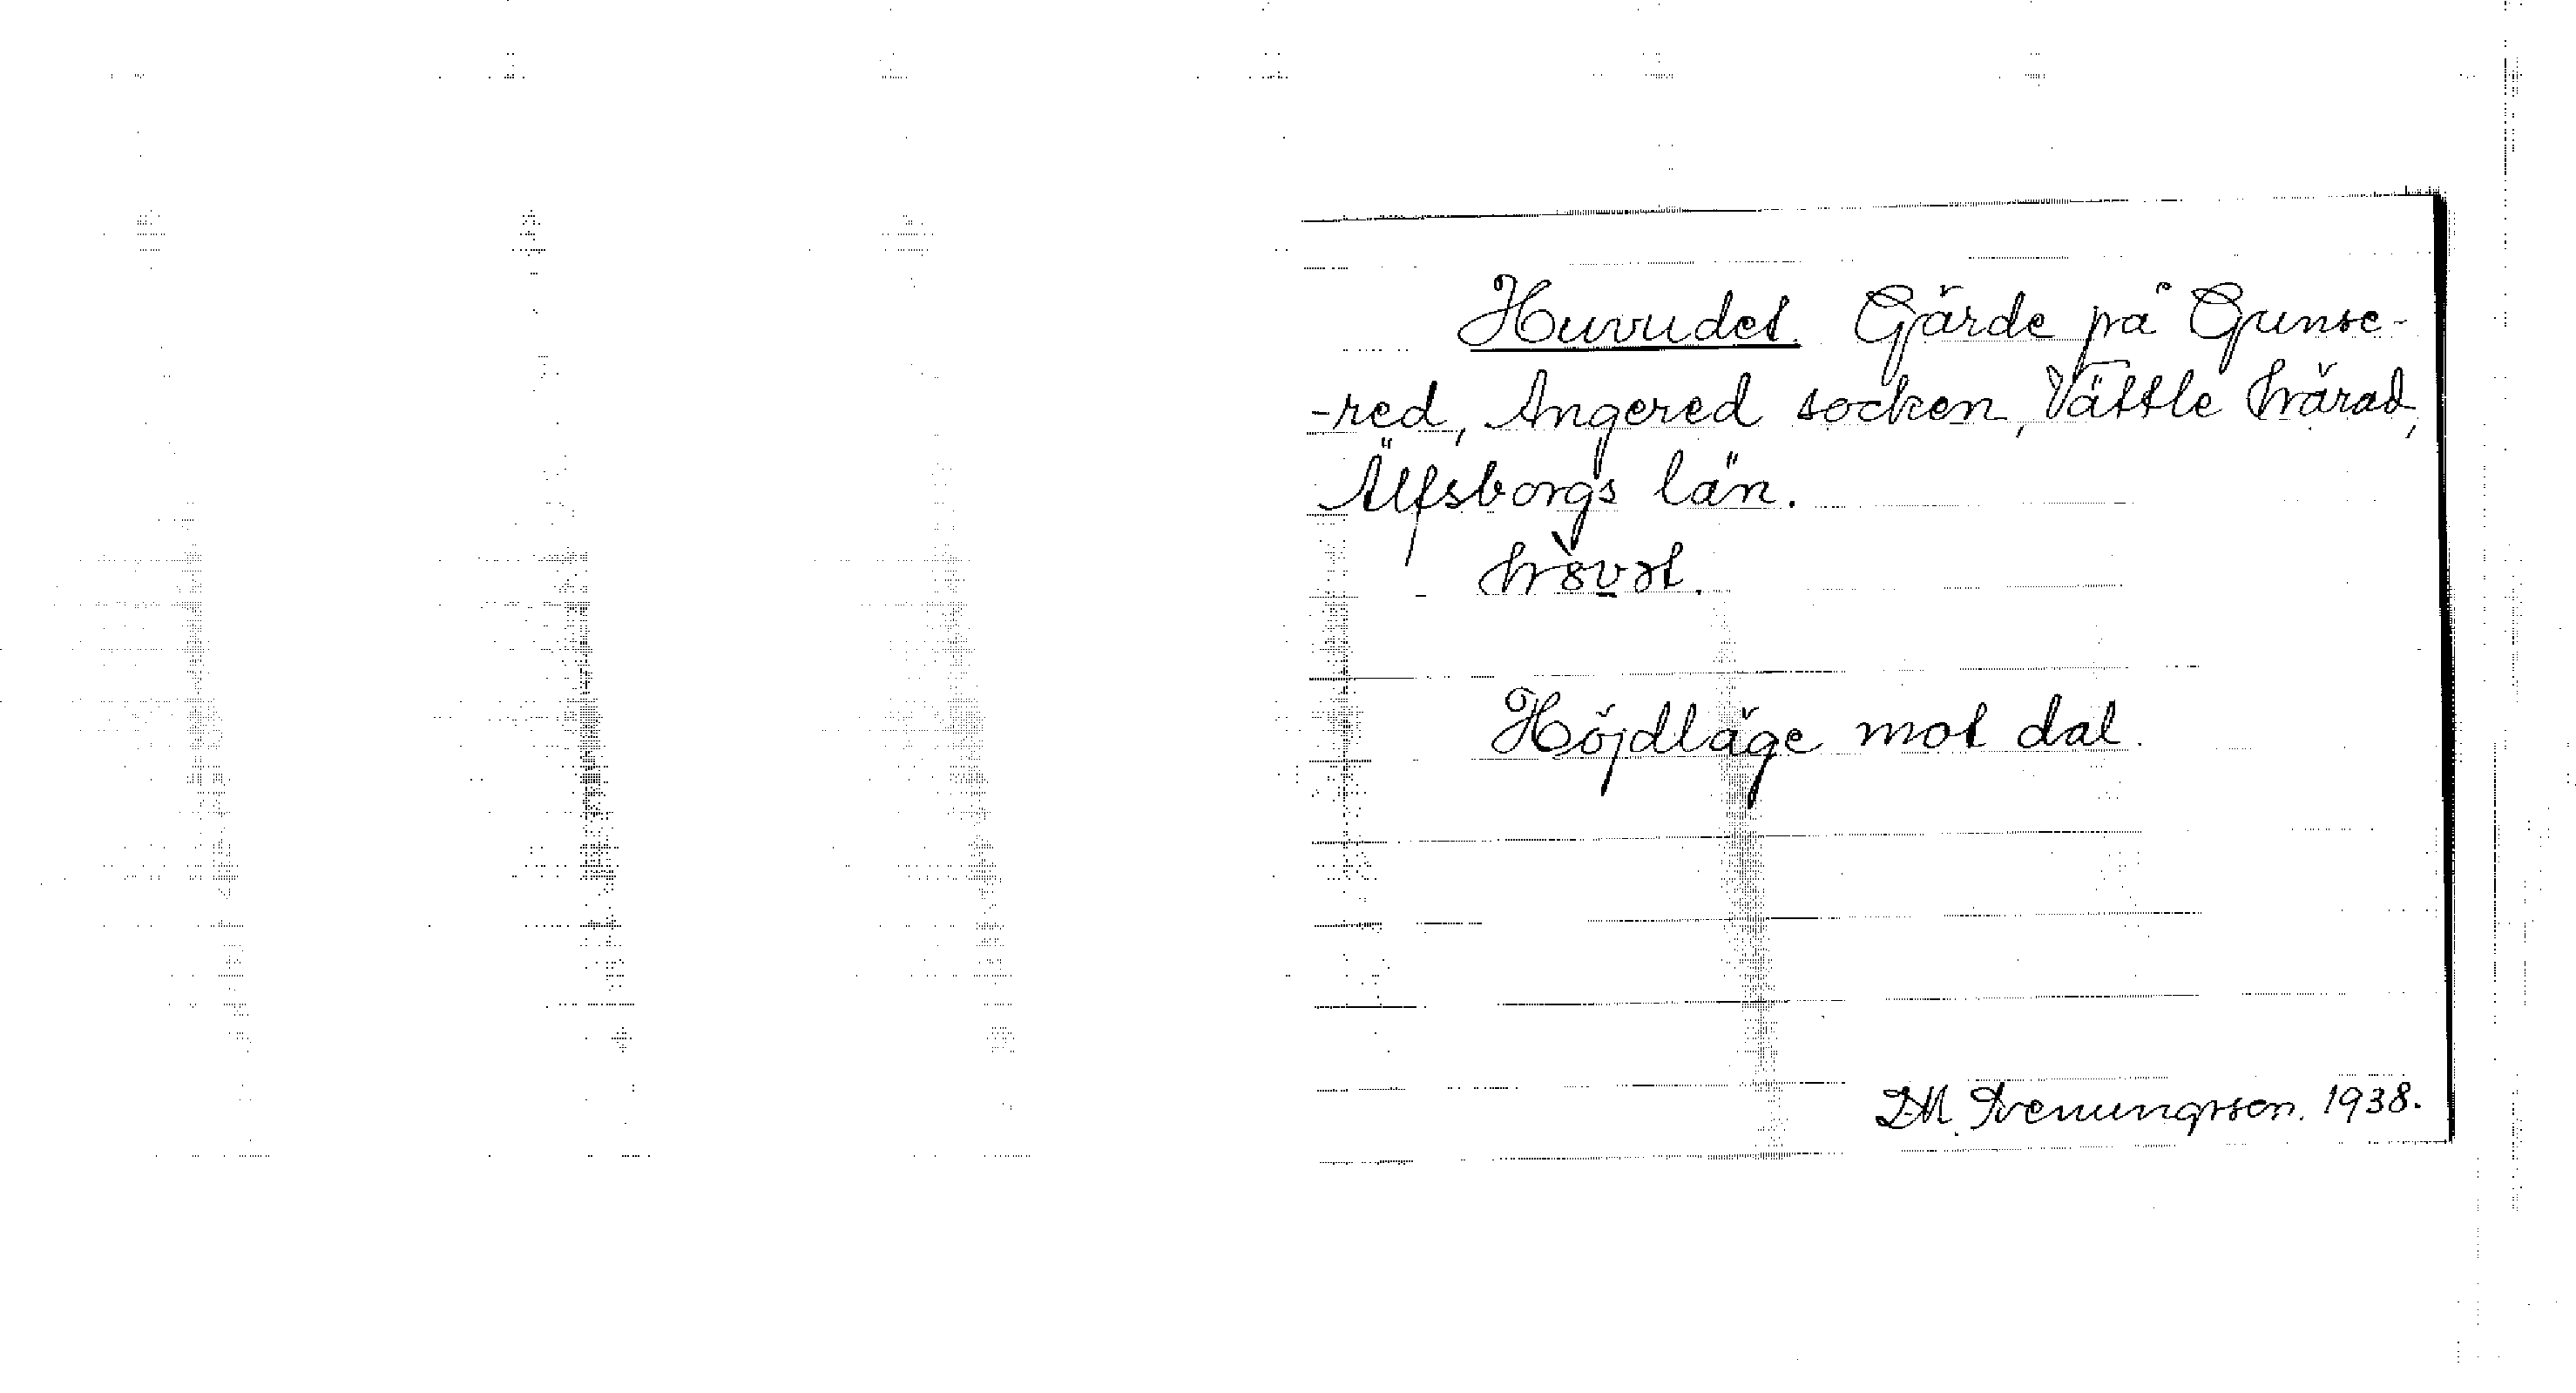 Huvudet. Gärde på Gunse-
-red, Angered socken, Vättle härad,
Älfsborgs län.
Höjdläge mot dal.
1938.